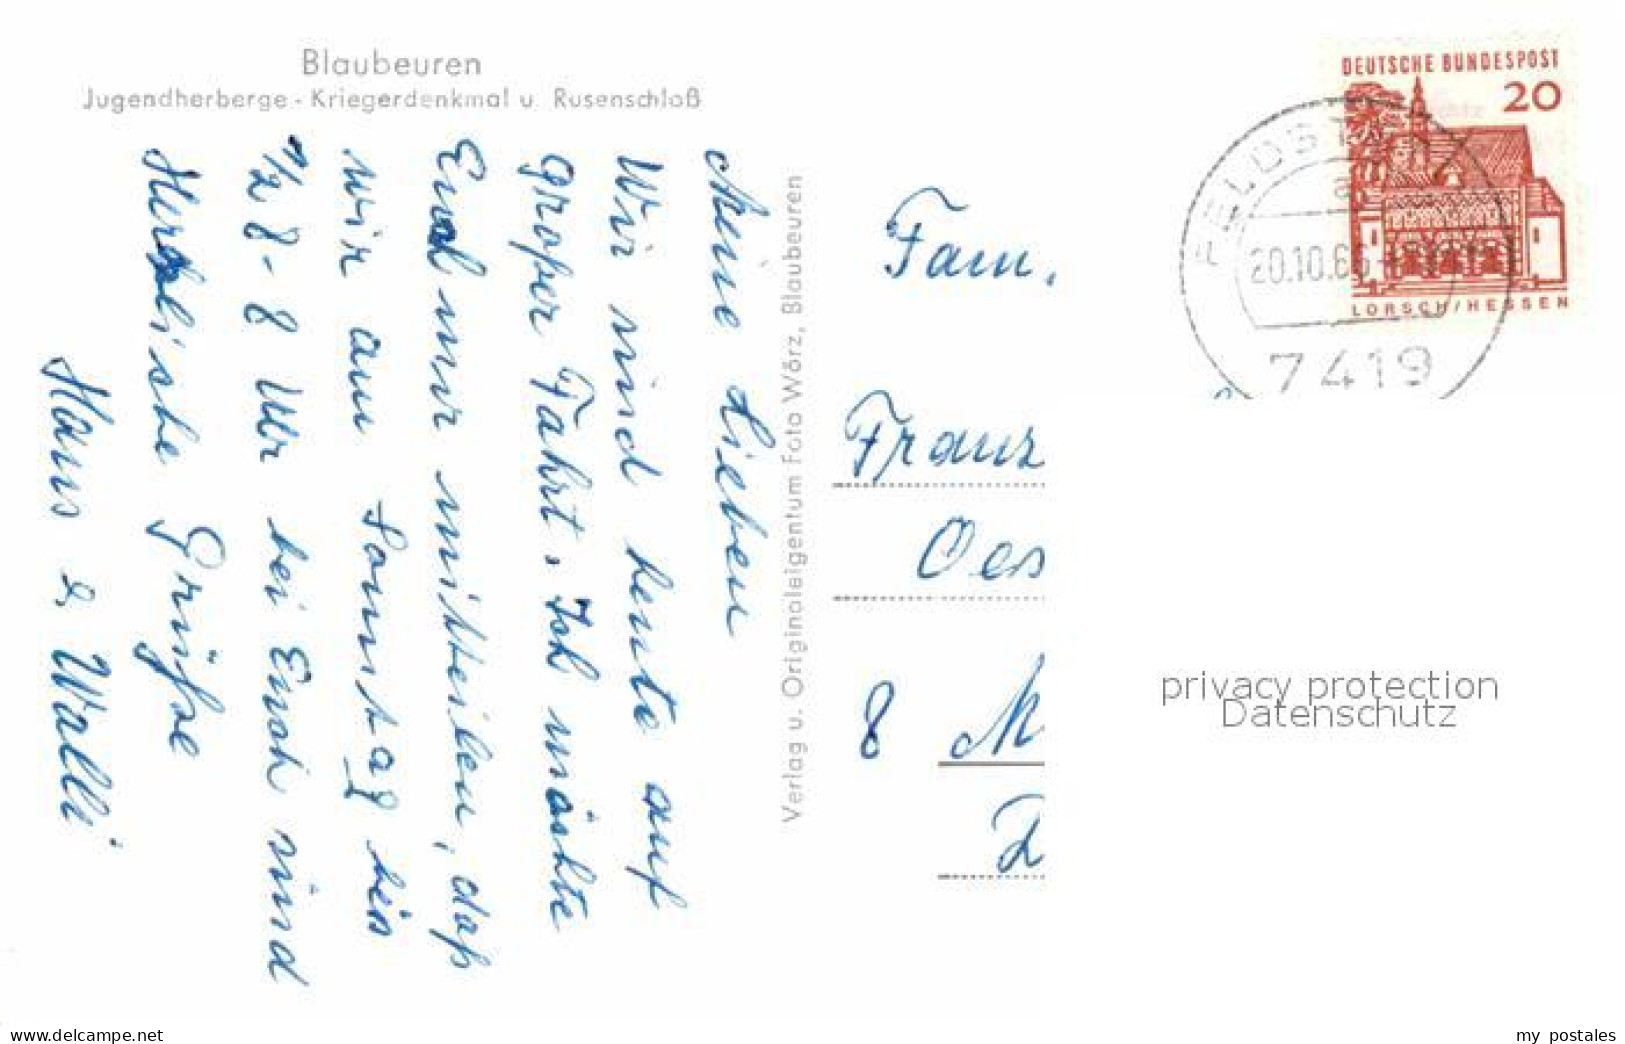 Blaubeuren
Jugendherberge - Kriegerdenkmal u. Rusenschloß
Meine Lieben
Wir sind heute auf
großer Fahrt. Ich möchte
Euch nur mitteilen, daß
wir am Sonntag bis
1/2 8 - 8 Uhr bei Euch sind
Herzliche Grüße
Hans & Walli
Verlag u. Originaleigentum Foto Wörz, Blaubeuren
DEUTSCHE BUNDESPOST
20
LORSCH/HESSEN
20.10.66
7419
Fam.
Franz
Oes
8 M
privacy protection
Datenschutz
www.delcampe.net
my_postales